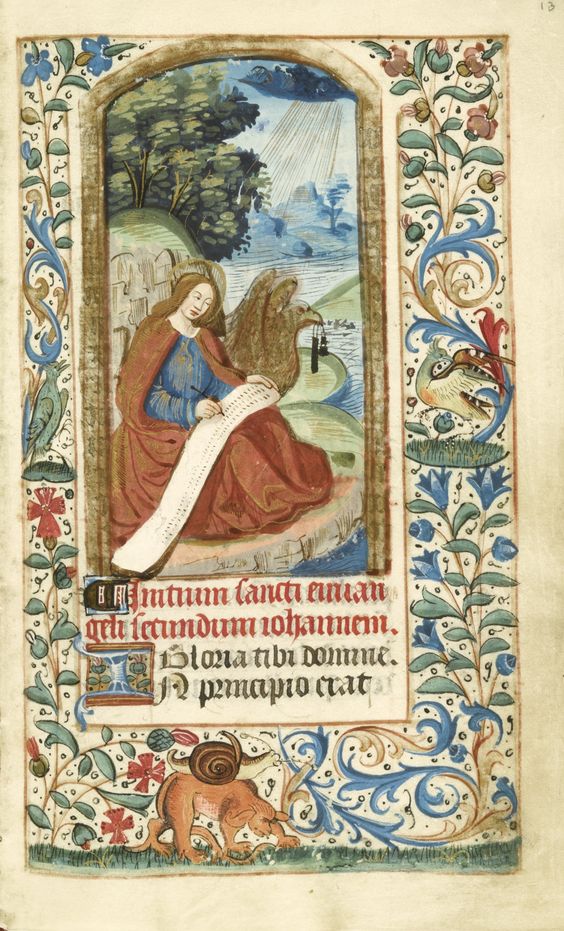 13
Initium sancti euuan
geli secundum iohannem.
Gloria tibi domine.
IN principio erat